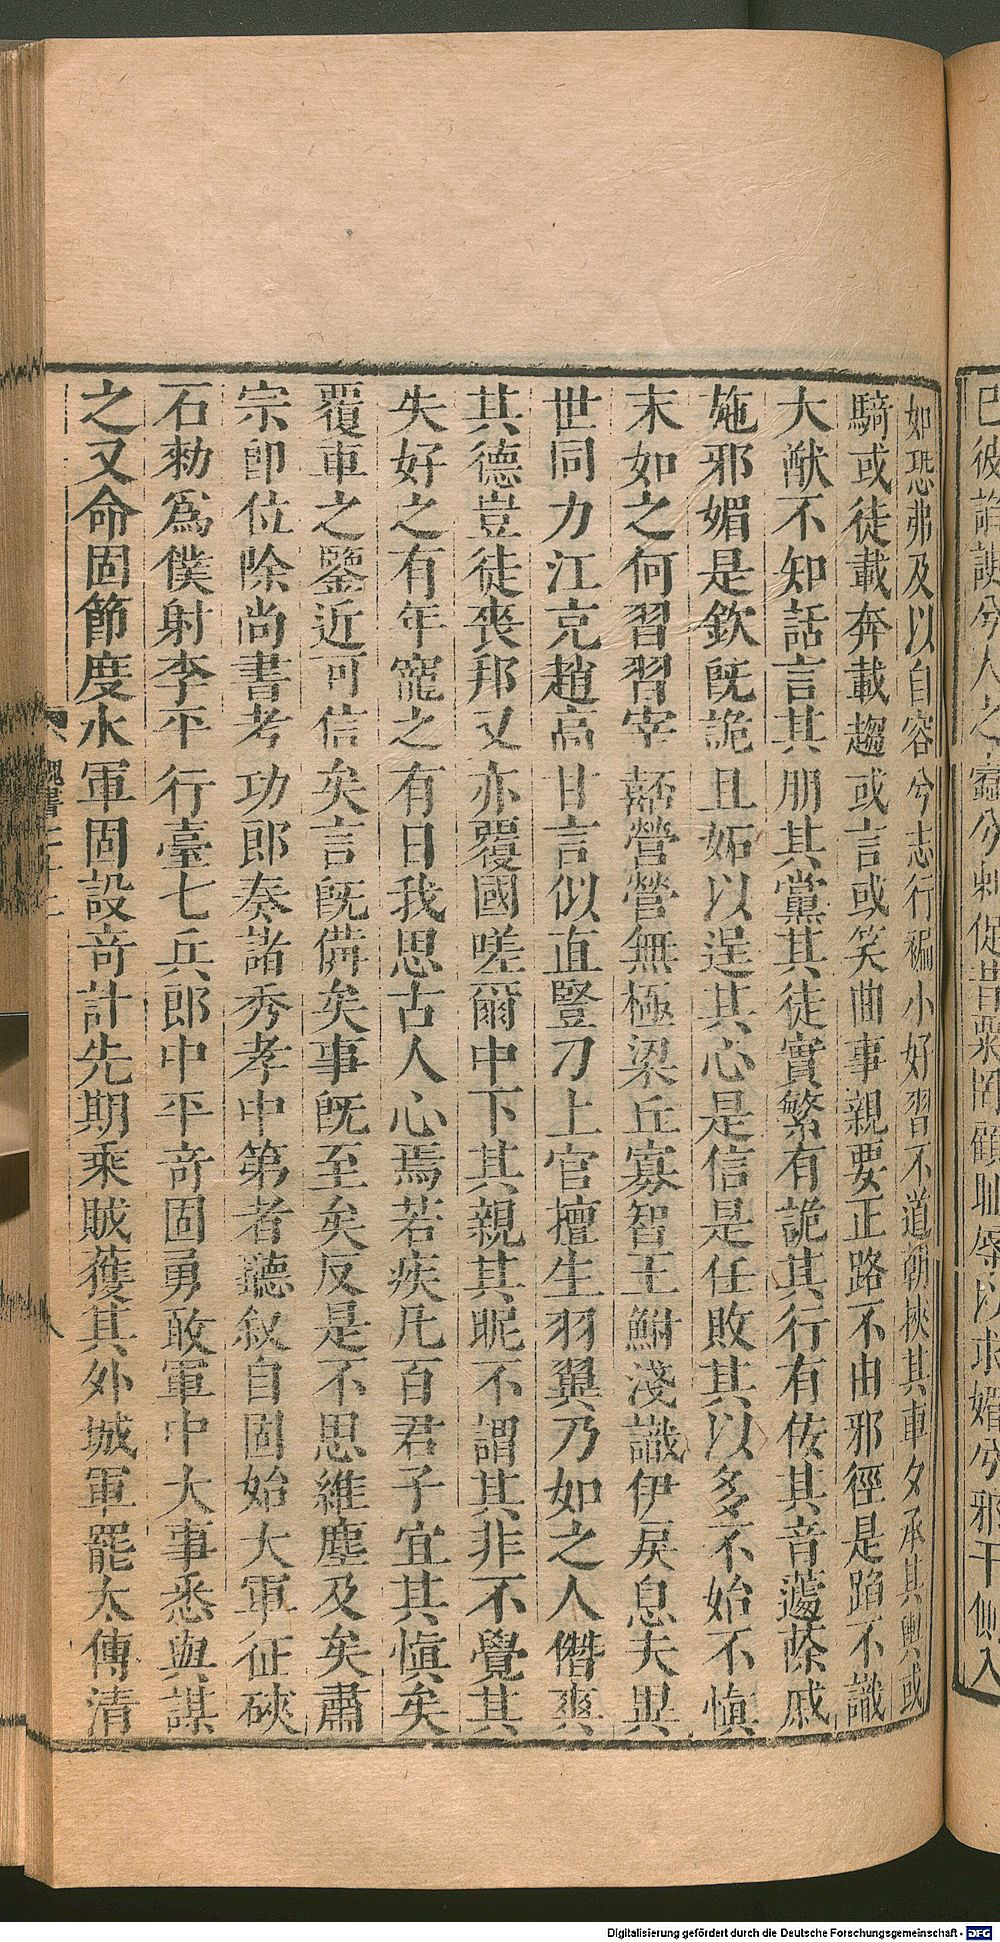 巳彼諂諛兮人之蠹兮刺促昔粟罔顧恥辱以求媚兮邪干側入
如恐弗及以自容兮志行褊小好習不道朝挾其車夕承其輿或
騎或徒載奔載趨或言或笑曲事親要正路不由邪徑是蹈不識
大猷不知話言其朋其黨其徒實繁有詭其行有佞其音蘧蒢戚
施邪媚是欽旣詭且妬以逞其心是信是任敗其以多不始不慎
末如之何習習宰嚭營營無極梁丘寡智王鮒淺識伊戾息夫異
世同力江克趙高甘言似直豎刀上官擅生羽翼乃如之人僭爽
其德豈徒喪邦又亦覆國嗟爾中下其親其昵不謂其非不覺其
失好之有年寵之有日我思古人心焉若疾凡百君子宜其慎矣
覆車之鑒近可信矣言旣備矣事旣至矣反是不思維塵及矣肅
宗卽位除尚書考功郎奏諸秀孝中第者聽敘自固始大軍征硤
石勑爲僕射李平行臺七兵郎中平竒固勇敢軍中大事悉與謀
之又命固節度水軍固設竒計先期乘賊獲其外城軍罷太傅清
魏書七十二
八
Digitalisierung gefördert durch die Deutsche Forschungsgemeinschaft - DFG